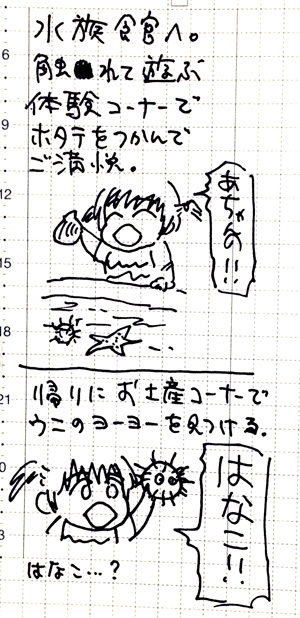 水族館へ。
触れて遊ぶ
体験コーナーで
ホタテをつかんで
ご満悦。
あちゃの!!
帰りにお土産コーナーで
ウニのヨーヨーを見つける。
はなこ!!
はなこ…?
6
9
12
15
18
21
0
3